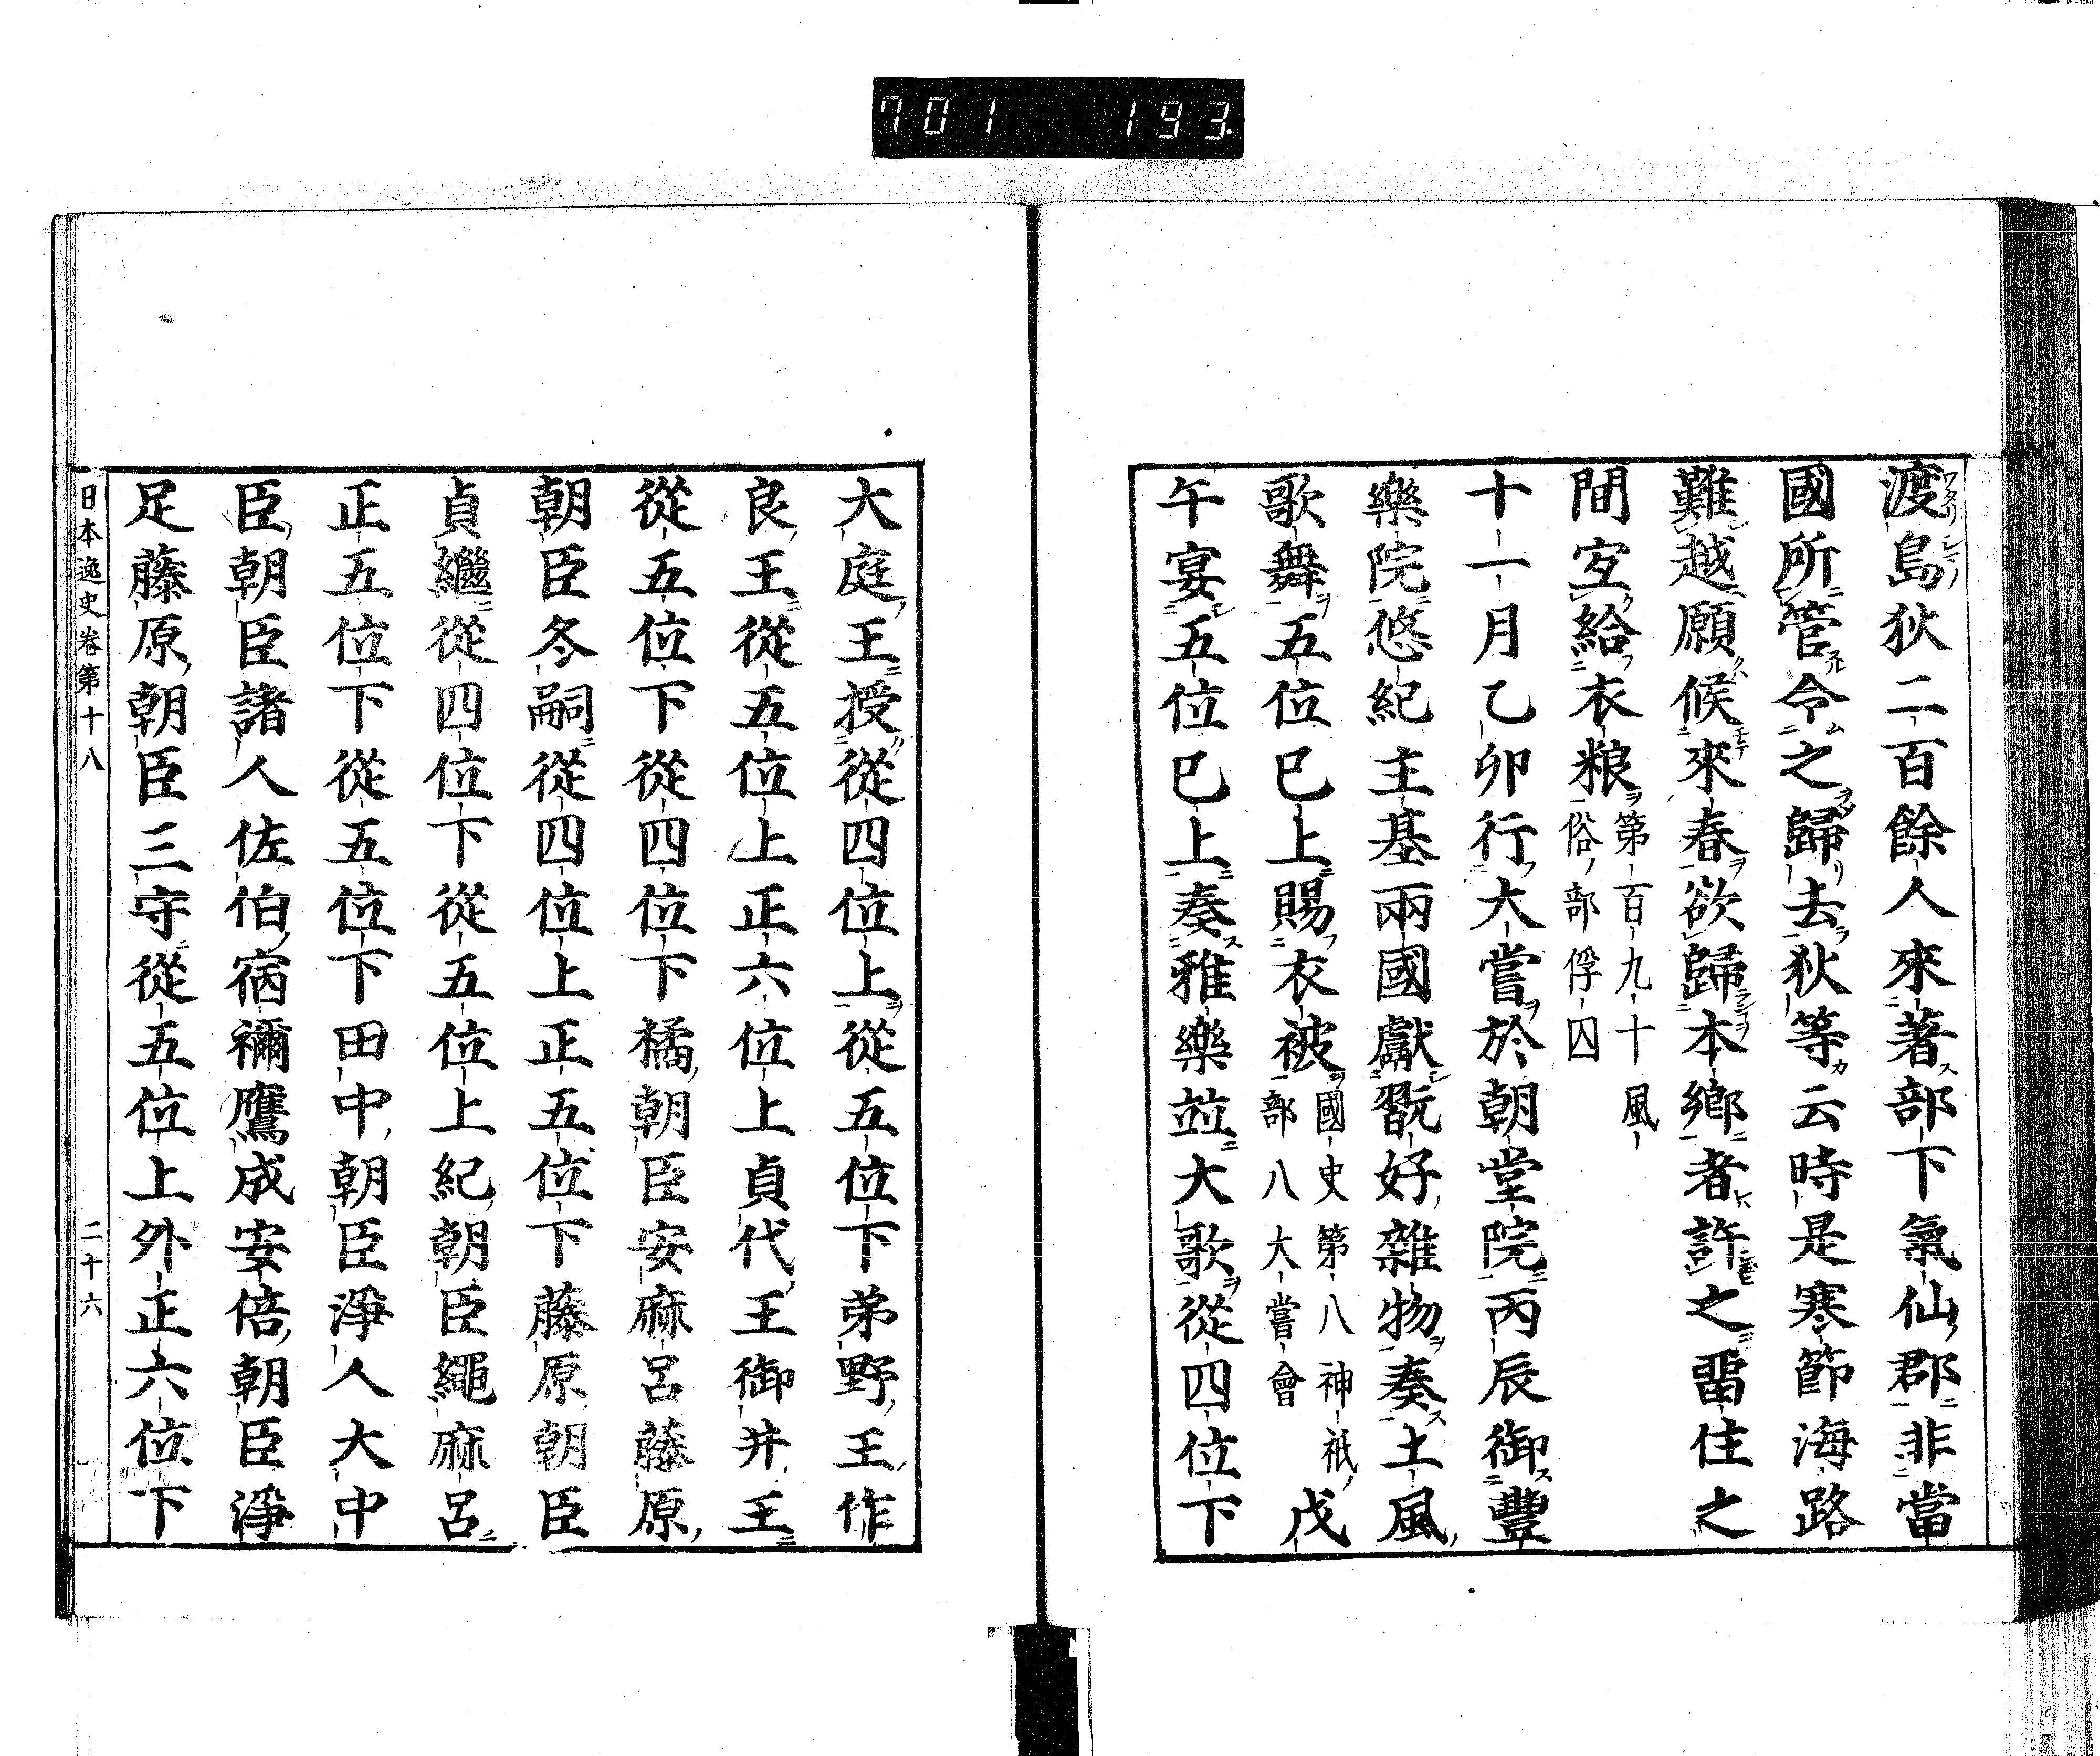 701 193
渡島狄二百餘人來著部下氣仙郡非當
國所管令之歸去狄等云時是寒節海路
難越願候來春欲歸本鄉者許之畱住之
間宜給衣粮第百九十風俗部俘囚
十一月乙卯行大嘗於朝堂院丙辰御豐
樂院悠紀主基兩國獻翫好雜物奏土風
歌舞五位已上賜衣被國史第八神祇部八大嘗會戊
午宴五位已上奏雅樂並大歌從四位下
大庭王授從四位上從五位下弟野王作
良王從五位上正六位上貞代王御井王
從五位下從四位下橘朝臣安麻呂藤原
朝臣冬嗣從四位上正五位下藤原朝臣
貞繼從四位下從五位上紀朝臣繩麻呂
正五位下從五位下田中朝臣淨人大中
臣朝臣諸人佐伯宿禰鷹成安倍朝臣淨
足藤原朝臣三守從五位上外正六位下
日本逸史卷第十八 二十六